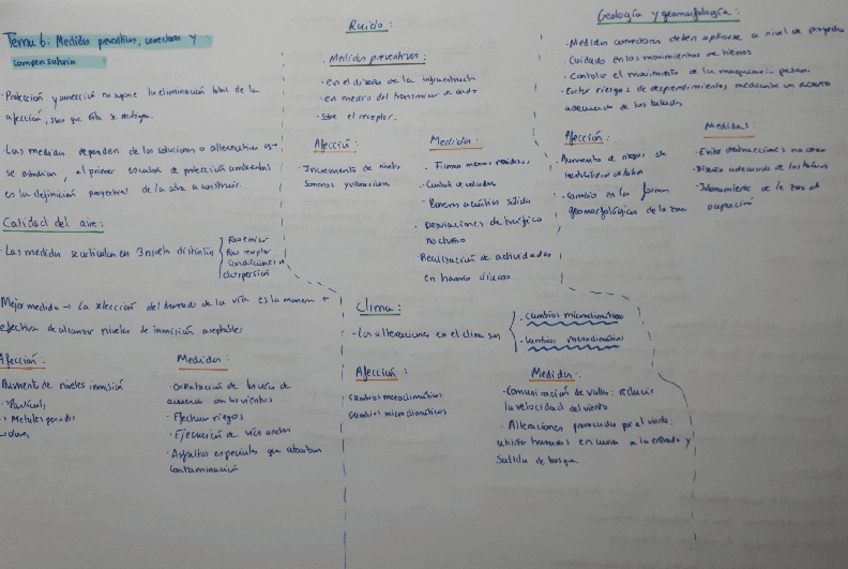 Tema 6: Medidas preventivas, correctoras y
compensatorias
· Protección y corrección no supone la eliminación total de la
afección, sino que ésta se mitigue.
· Las medidas dependen de las soluciones o alternativas que
se estudian, el primer escalón de protección ambiental
en la definición proyectual de la obra a construir.
Calidad del aire:
· Las medidas se articulan en 3 niveles distintos
Foco emisor
Foco receptor
Condiciones de
dispersión
Mejor medida → La selección del trazado de la vía es la manera +
efectiva de alcanzar niveles de inmisión aceptables
Afección:
Aumento de niveles inmisión
→ Partículas
→ Metales pesados
Medidas:
· Orientación de la vía de
acuerdo con los vientos
· Efectuar riegos
· Ejecución de vías anchas
· Asfaltos especiales que absorban
contaminación
Ruido:
Medidas preventivas:
· en el diseño de la infraestructura
· en medio del transmisor de onda
· Sobre el receptor.
Afección:
· Incremento de niveles
sonoros y vibraciones
Medidas:
· Firmes menos ruidosos,
· Control de voladuras
· Barreras acústicas sólidas
· Desviaciones de tráfico
nocturno
· Realización de actividades
en horario diurno
Clima:
· Las alteraciones en el clima son
· Cambios microclimáticos
· Cambios mesoclimáticos
Afección:
cambios mesoclimáticos
cambios microclimáticos
Medidas:
· Comunicación de valles: reducir
la velocidad del viento
· Alteraciones provocadas por el viento:
utilizar trazados en curva a la entrada y
salida de bosque.
Geología y geomorfología:
· Medidas correctoras deben aplicarse a nivel de proyecto
· Cuidado en los movimientos de tierras
· Controlar el movimiento de la maquinaria pesada.
· Evitar riesgos de desprendimientos mediante un diseño
adecuado de los taludes
Afección:
· Aumento de riesgos de
inestabilidad de taludes
· Cambio en la forma
geomorfológica de la zona
Medidas:
· Evitar
· Diseño adecuado de los taludes
· de la zona de
ocupación